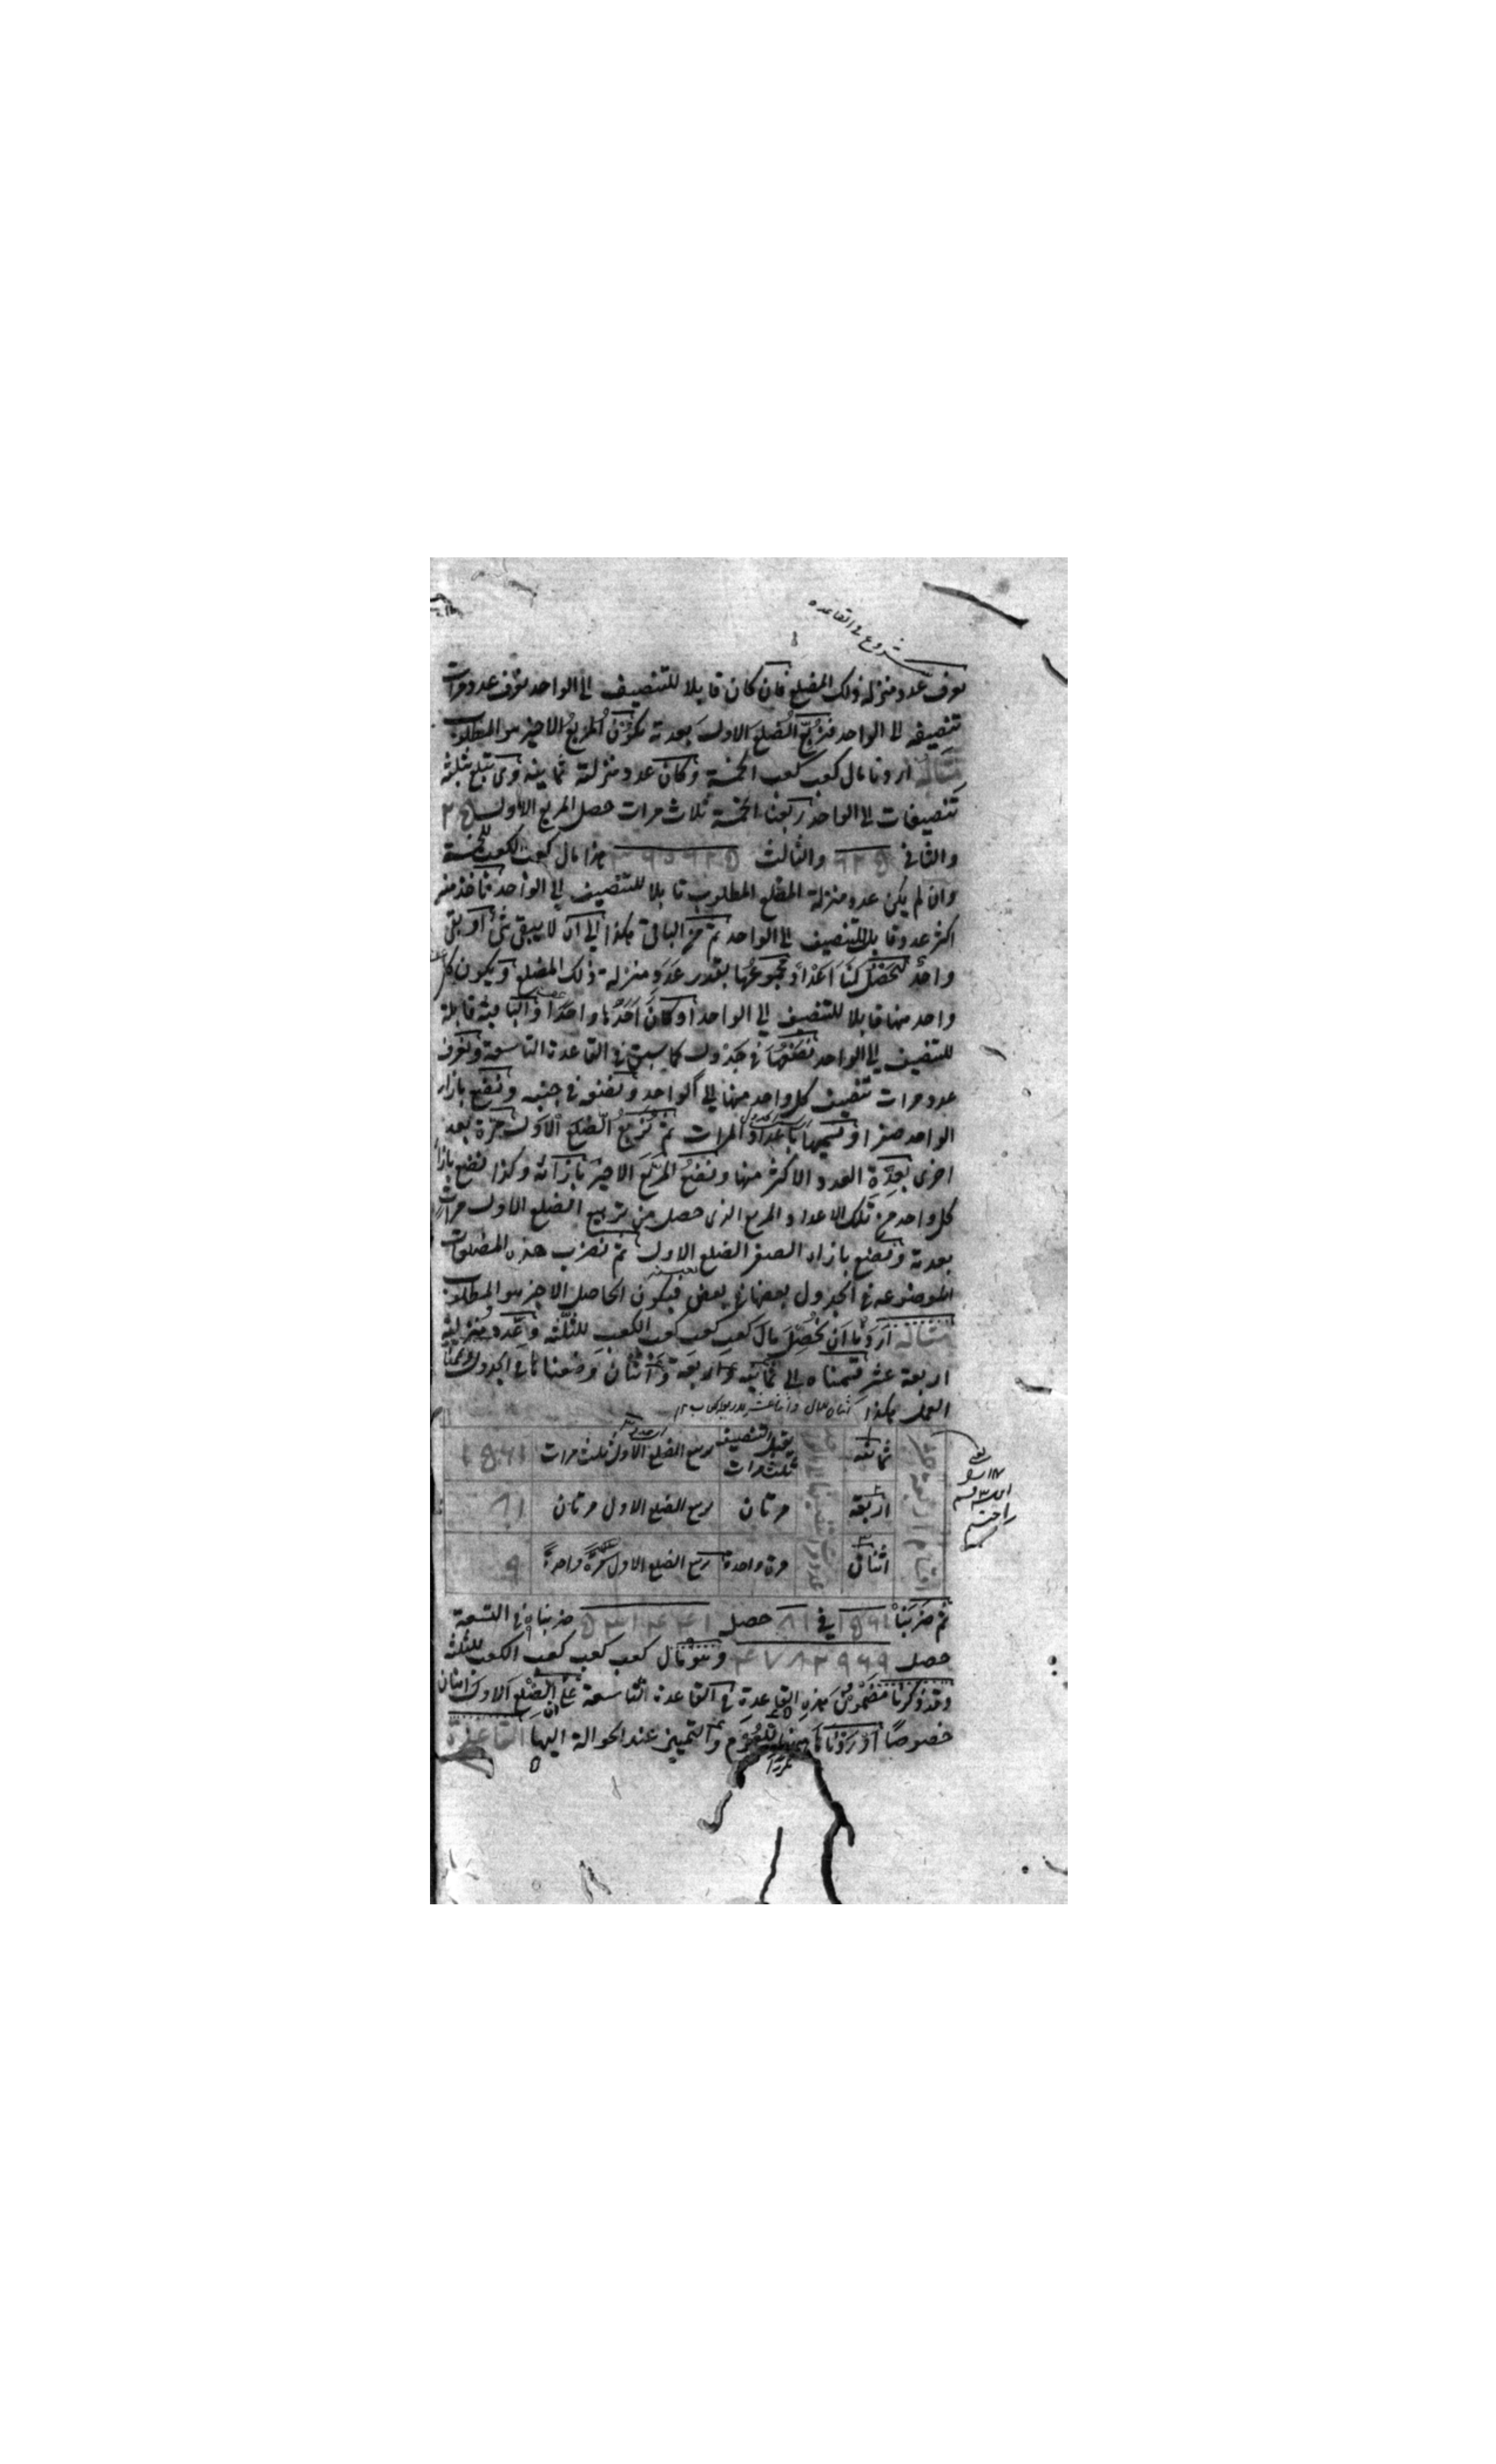 شروع في القاعده
نعرف عدد منزلة ذلك المضلع فان كان قابلا للتنصيف الى الواحد نعرف عدد مرات
تنصيفه الى الواحد فنربع الضلع الاول بعدته يكون المربع الاخير هو المطلوب
مثاله اردنا مال كعب كعب الخمسة وكان عدد منزلته ثمانية وهي تبلغ بثلثة
تنصيفات الى الواحد ربعنا الخمسة ثلاث مرات حصل المربع الاول ٢٥
والثاني ٦٢٥ والثالث ٣٩٠٦٢٥ هذا مال كعب الكعب للخمسة
وان لم يكن عدد منزلة المضلع المطلوب قابلا للتنصيف الى الواحد نأخذ منه
اكثر عدد قابل للتنصيف الى الواحد ثم من الباقي هكذا الى ان لا يبقى شئ او بقي
واحد لتحصل لنا اعداد مجموعها بقدر عدد منزلة ذلك المضلع ويكون كل
واحد منها قابلا للتنصيف الى الواحد او كان احدها واحدا والباقية قابلة
للتنصيف الى الواحد نضعها في جدول كما سبق في القاعدة التاسعة ونعرف
عدد مرات تنصيف كل واحد منها الى الواحد ونضعه في جنبه ونضع بازاء
الواحد صفرا ونسميها باعداد المرات ثم نربع الضلع الاول مرة بعد
اخرى بعدة العدد الاكثر منها ونضع المربع الاخير بازائه وكذا نضع بازاء
كل واحد من تلك الاعداد المربع الذي حصل من تربيع الضلع الاول مرات
بعدته ونضع بازاء الصفر الضلع الاول ثم نضرب هذه المضلعات
الموضوعه في الجدول بعضها في بعض فيكون الحاصل الاخير هو المطلوب
مثاله اردنا ان نحصل مال كعب كعب كعب الكعب للثلثه وعدد منزلته
اربعة عشر قسمناه الى ثمانيه واربعة واثنان وضعناها في الجدول وتممنا
العمل هكذا
ثمانيه يقبل التنصيف ثلث مرات مربع الضلع الاول ثلث مرات ٦٥٦١
اربعة مرتان مربع الضلع الاول مرتان ٨١
اثنان مرة واحدة مربع الضلع الاول مرة واحدة ٩
ثم ضربنا ٦٥٦١ في ٨١ حصل ٥٣١٤٤١ ضربناه في التسعة
حصل ٤٧٨٢٩٦٩ وهو مال كعب كعب كعب الكعب للثلثه
وقد ذكرنا مضمون هذه القاعدة في القاعدة التاسعة على الضلع الاول اثنان
خصوصا اوردناها ههنا للعموم والتمييز عند الحوالة اليها القاعدة